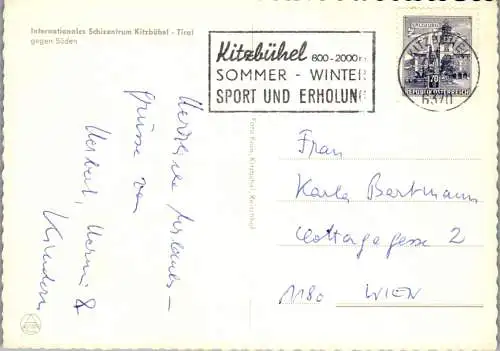 Internationales Schizentrum Kitzbühel - Tirol
gegen Süden
Kitzbühel 800-2000m
SOMMER - WINTER
SPORT UND ERHOLUNG
KITZBÜHEL
6370
REPUBLIK ÖSTERREICH
Herzliche Urlaubs-
grüsse von
Herbert, Herni &
Kindern
Frau
Karla Bartmann
gasse 2
1180 WIEN